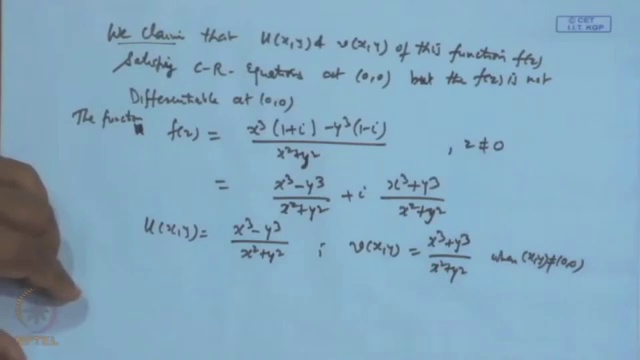 © CET
I.I.T. KGP
We Claim that u(x,y) & v(x,y) of this function f(z)
Satisfing C-R-Equations at (0,0) but the f(z) is not
Differentiable at (0,0)
The functi f(z) = x³(1+i) - y³(1-i) / x²+y² , z ≠ 0
= x³-y³ / x²+y² + i x³+y³ / x²+y²
u(x,y) = x³-y³ / x²+y² ; v(x,y) = x³+y³ / x²+y² when (x,y)≠(0,0)
NPTEL